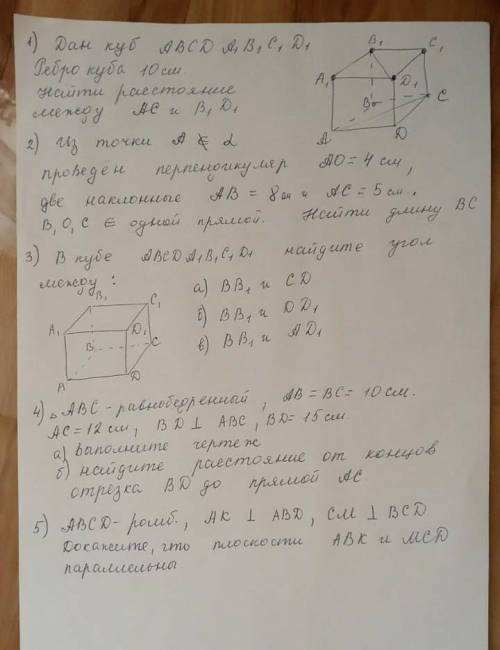 1) Дан куб ABCD A₁ B₁ C₁ D₁
Ребро куба 10 см.
Найти расстояние
между AC и B₁ D₁
B₁
C₁
A₁
D₁
B
C
A
D
2) Из точки A ∉ α
проведён перпендикуляр AO = 4 см,
две наклонные AB = 8 см и AC = 5 см.
B, O, C ∈ одной прямой. Найти длину BC
3) В кубе ABCD A₁ B₁ C₁ D₁ найдите угол
между:
а) BB₁ и CD
б) BB₁ и DD₁
в) BB₁ и AD₁
B₁
C₁
A₁
D₁
B
C
A
D
4) △ABC - равнобедренный, AB = BC = 10 см.
AC = 12 см, BD ⊥ ABC, BD = 15 см
а) Выполните чертеж
б) найдите расстояние от концов
отрезка BD до прямой AC
5) ABCD - ромб., AK ⊥ ABD, CM ⊥ BCD
Докажите, что плоскости ABK и MCD
параллельны